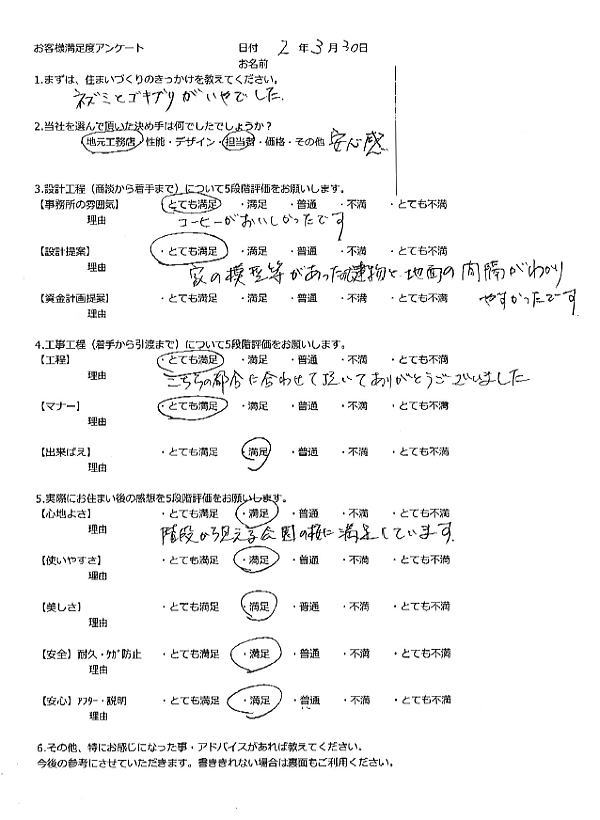 お客様満足度アンケート 日付 2 年 3 月 30 日
お名前
1.まずは、住まいづくりのきっかけを教えてください。
ネズミとゴキブリがいやでした。
2.当社を選んで頂いた決め手は何でしたでしょうか?
地元工務店・性能・デザイン・担当者・価格・その他 安心感
3.設計工程（商談から着手まで）について5段階評価をお願いします。
【事務所の雰囲気】 ・とても満足 ・満足 ・普通 ・不満 ・とても不満
理由 コーヒーがおいしかったです
【設計提案】 ・とても満足 ・満足 ・普通 ・不満 ・とても不満
理由 家の模型等があった 建物と地面の間隔がわかり
やすかったです
【資金計画提案】 ・とても満足 ・満足 ・普通 ・不満 ・とても不満
理由
4.工事工程（着手から引渡まで）について5段階評価をお願いします。
【工程】 ・とても満足 ・満足 ・普通 ・不満 ・とても不満
理由 こちらの都合に合わせて頂いてありがとうございました
【マナー】 ・とても満足 ・満足 ・普通 ・不満 ・とても不満
理由
【出来ばえ】 ・とても満足 ・満足 ・普通 ・不満 ・とても不満
理由
5.実際にお住まい後の感想を5段階評価をお願いします。
【心地よさ】 ・とても満足 ・満足 ・普通 ・不満 ・とても不満
理由 階段から見える公園の桜に満足しています。
【使いやすさ】 ・とても満足 ・満足 ・普通 ・不満 ・とても不満
理由
【美しさ】 ・とても満足 ・満足 ・普通 ・不満 ・とても不満
理由
【安全】耐久・ｹｶﾞ防止 ・とても満足 ・満足 ・普通 ・不満 ・とても不満
理由
【安心】ｱﾌﾀｰ・説明 ・とても満足 ・満足 ・普通 ・不満 ・とても不満
理由
6.その他、特にお感じになった事・アドバイスがあれば教えてください。
今後の参考にさせていただきます。書ききれない場合は裏面もご利用ください。